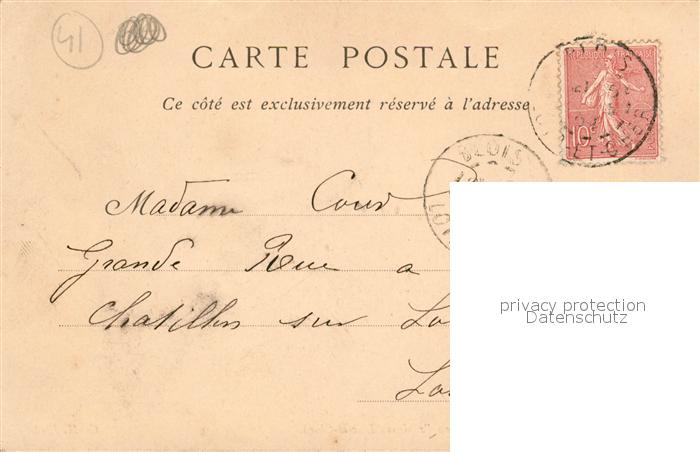 41
CARTE POSTALE
Ce côté est exclusivement réservé à l'adresse
RÉPUBLIQUE FRANÇAISE
10
LOIR-ET-CHER
BLOIS
Madame
Grande Rue a
Chatillon sur
privacy protection
Datenschutz